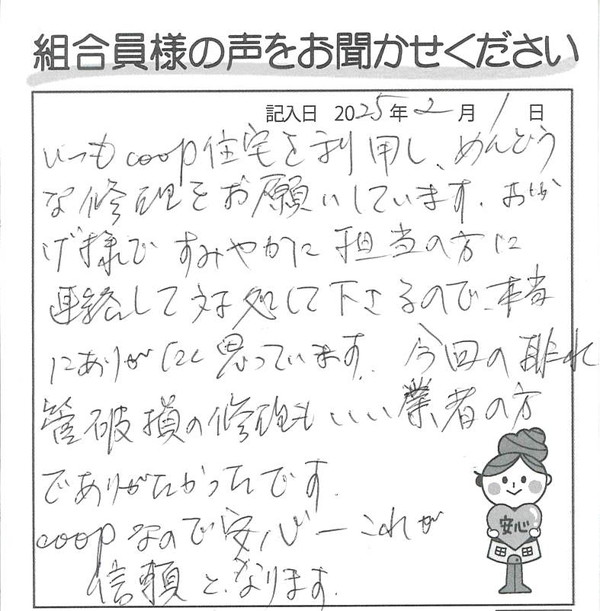 組合員様の声をお聞かせください
記入日 2025年2月1日
いつもcoop住宅を利用し、めんどう
な修理をお願いしています。おか
げ様で すみやかに 担当の方に
連絡して対処して下さるので、本当
にありがたく思っています。今回の排水
管破損の修理も いい業者の方
でありがたかったです。
coopなので安心ー これが
信頼となります。
安心